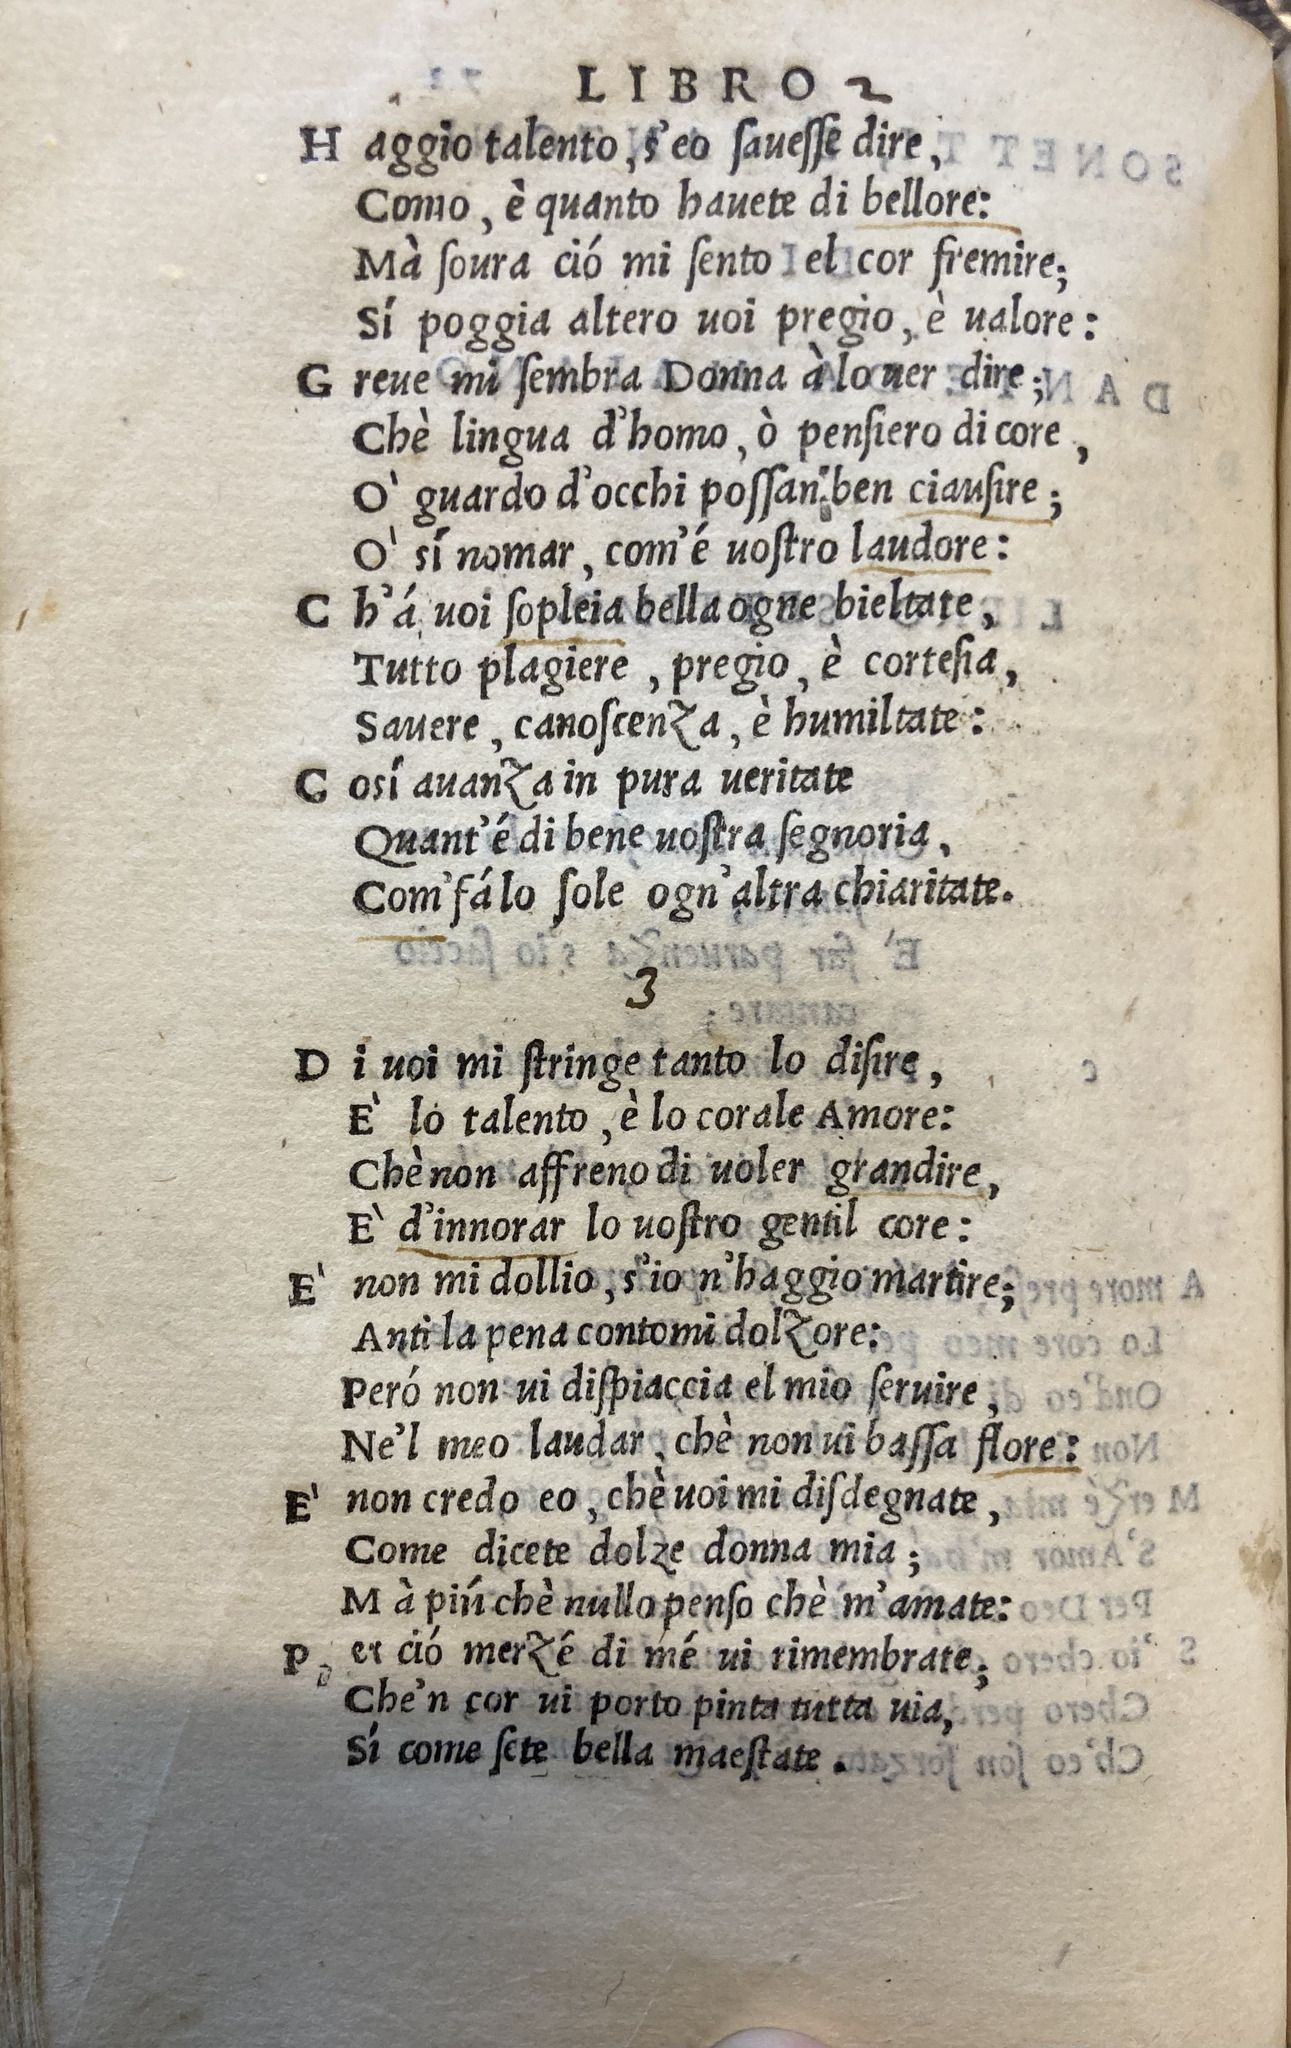 LIBRO 2
H aggio talento, s'eo ſaueſſe dire,
Como, è quanto hauete di bellore:
Mà ſoura ció mi ſento el cor fremire;
Sí poggia altero uoi pregio, è ualore:
G reue mi ſembra Donna à lo uer dire;
Chè lingua d'homo, ò penſiero di core,
O' guardo d'occhi poſſan' ben ciauſire;
O' sí nomar, com'é uoſtro laudore:
C h'á uoi ſopleia bella ogne bieltate,
Tutto plagiere, pregio, è corteſia,
Sauere, canoſcenza, è humiltate:
C osí auanza in pura ueritate
Quant'é di bene uoſtra ſegnoria,
Com' fá lo ſole ogn'altra chiaritate.
3
D i uoi mi ſtringe tanto lo diſire,
E' lo talento, è lo corale Amore:
Chè non affreno di uoler grandire,
E' d'innorar lo uoſtro gentil core:
E' non mi dollio, s'io n'haggio martire;
Anti la pena contomi dolzore:
Peró non ui diſpiaccia el mio ſeruire,
Ne'l meo laudar, chè non ui baſſa flore:
E' non credo eo, chè uoi mi diſdegnate,
Come dicete dolze donna mia;
M à piú chè nullo penſo chè m'amate:
P er ció merzé di mé ui rimembrate;
Che'n cor ui porto pinta tutta uia,
Sí come ſete bella maeſtate.